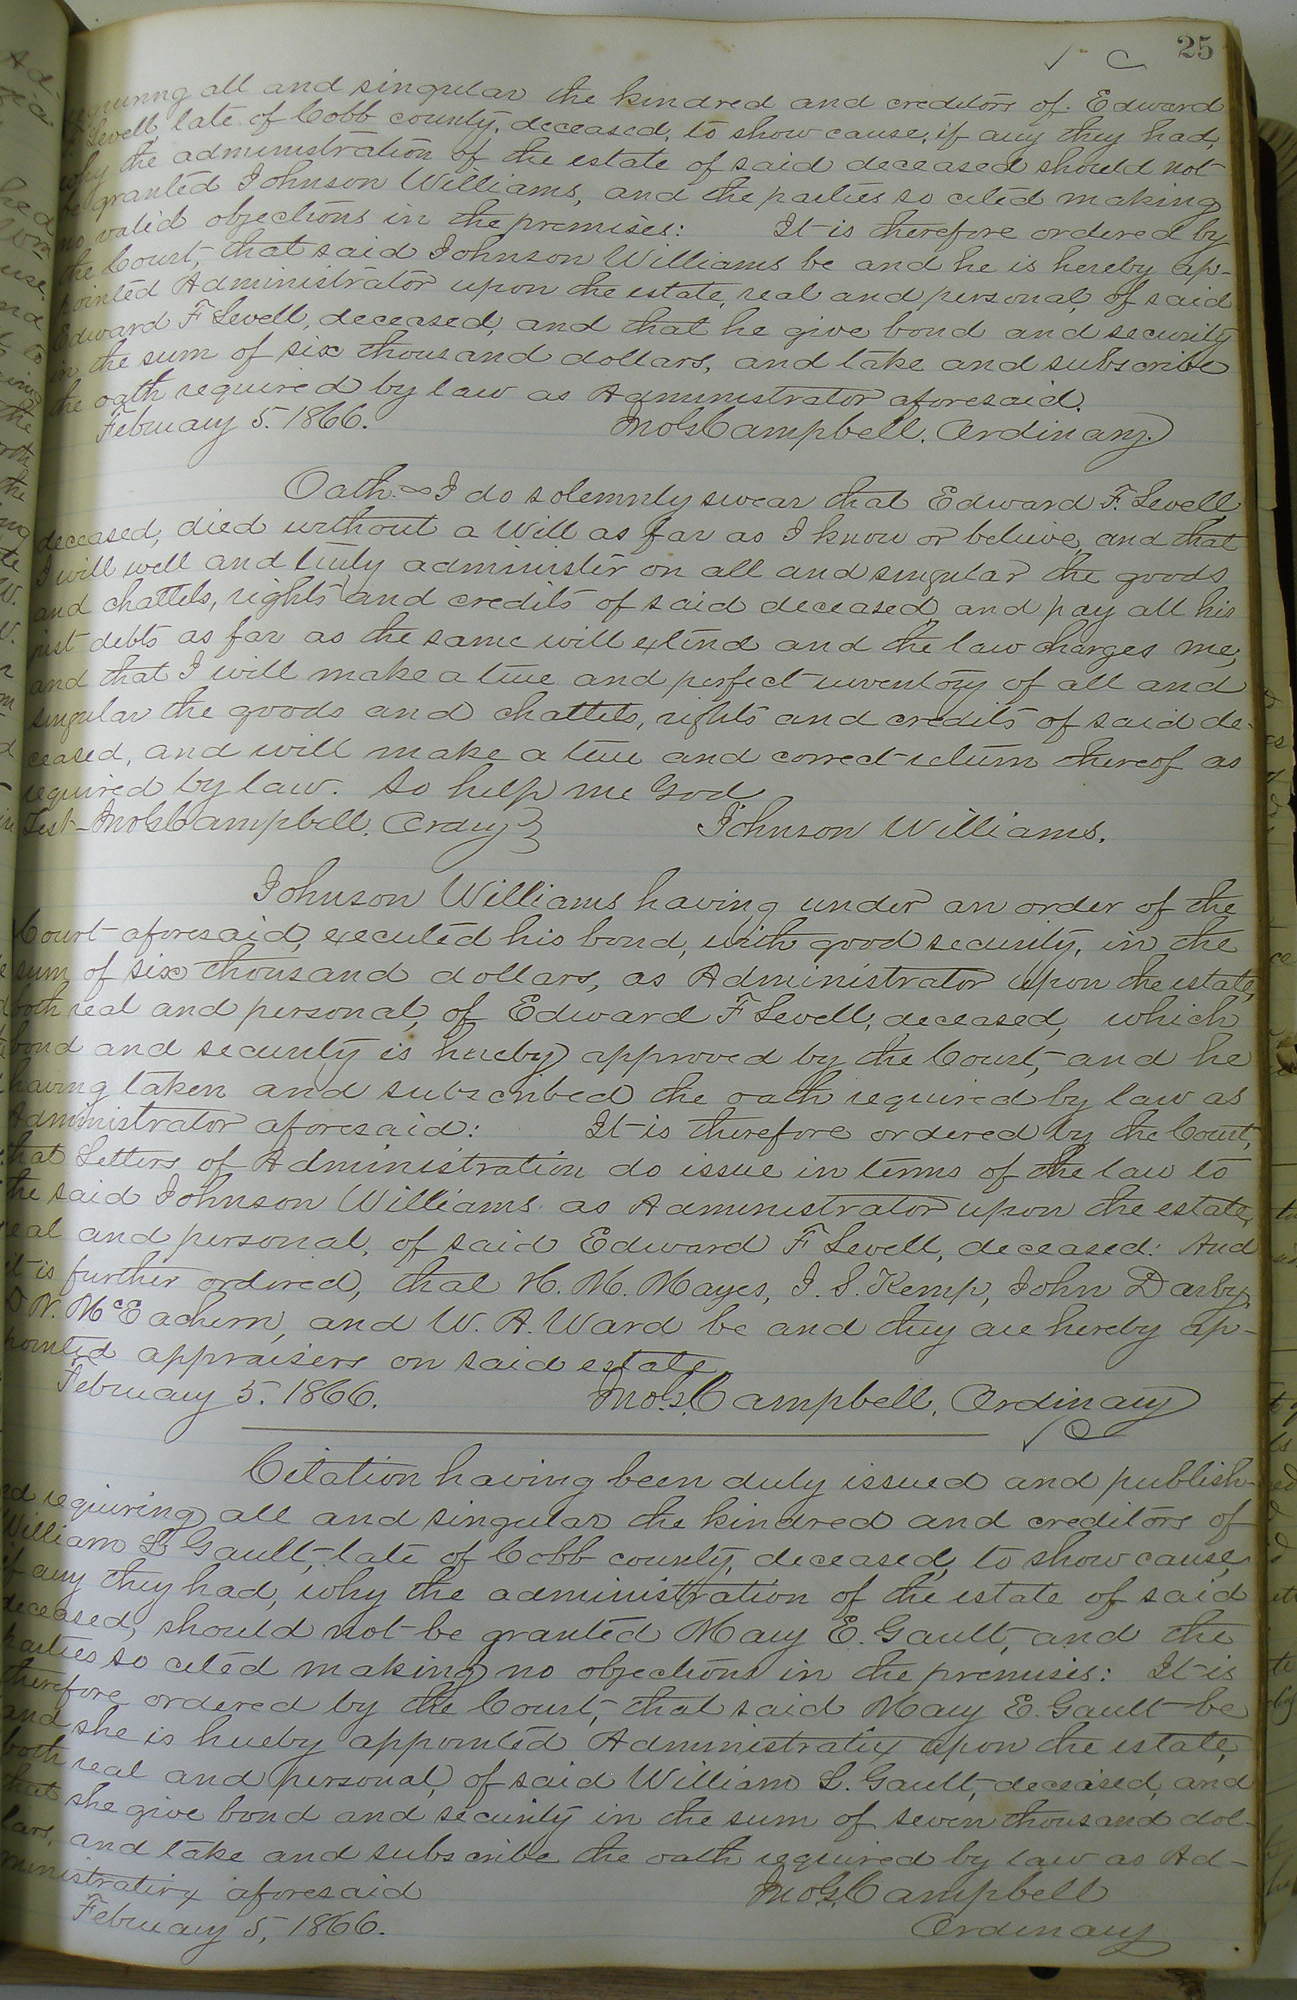 25
requiring all and singular the kindred and creditors of Edward
F Levell, late of Cobb county, deceased, to show cause, if any they had,
why the administration of the estate of said deceased should not
be granted Johnson Williams, and the parties so cited making
no valid objections in the premises: It is therefore ordered by
the Court, that said Johnson Williams be and he is hereby ap-
pointed Administrator upon the estate, real and personal, of said
Edward F Levell, deceased, and that he give bond and security
in the sum of six thousand dollars, and take and subscribe
the oath required by law as Administrator aforesaid.
February 5. 1866. Jno. G. Campbell. Ordinary.
Oath.~I do solemnly swear that Edward F. Levell,
deceased, died without a Will as far as I know or believe, and that
I will well and truly administer on all and singular the goods
and chattels, rights and credits of said deceased and pay all his
just debts as far as the same will extend and the law charges me,
and that I will make a true and perfect inventory of all and
singular the goods and chattels, rights and credits of said de-
ceased, and will make a true and correct return thereof as
required by law. So help me God
Test-Jno. G. Campbell. Ordny} Johnson Williams.
Johnson Williams having under an order of the
Court aforesaid, executed his bond, with good security, in the
sum of six thousand dollars, as Administrator upon the estate,
both real and personal, of Edward F Levell, deceased, which
bond and security is hereby approved by the Court, and he
having taken and subscribed the oath required by law as
Administrator aforesaid: It is therefore ordered by the Court,
that Letters of Administration do issue in terms of the law to
the said Johnson Williams as Administrator upon the estate,
real and personal, of said Edward F Levell, deceased: And
it is further ordered, that M. M. Mayes, J. S. Kemp, John Darby,
D N. McEachern, and W. A. Ward be and they are hereby ap-
pointed appraisers on said estate
February 5. 1866. Jno. G. Campbell, Ordinary
Citation having been duly issued and publish-
ed requiring all and singular the kindred and creditors of
William L. Gault, late of Cobb county, deceased, to show cause,
if any they had, why the administration of the estate of said
deceased, should not be granted Mary E. Gault, and the
parties so cited making no objections in the premises: It is
therefore ordered by the Court, that said Mary E. Gault be
and she is hereby appointed Administratrix upon the estate,
both real and personal, of said William L. Gault, deceased, and
that she give bond and security in the sum of seven thousand dol-
lars, and take and subscribe the oath required by law as Ad-
ministratrix aforesaid Jno. G. Campbell
February 5, 1866. Ordinary